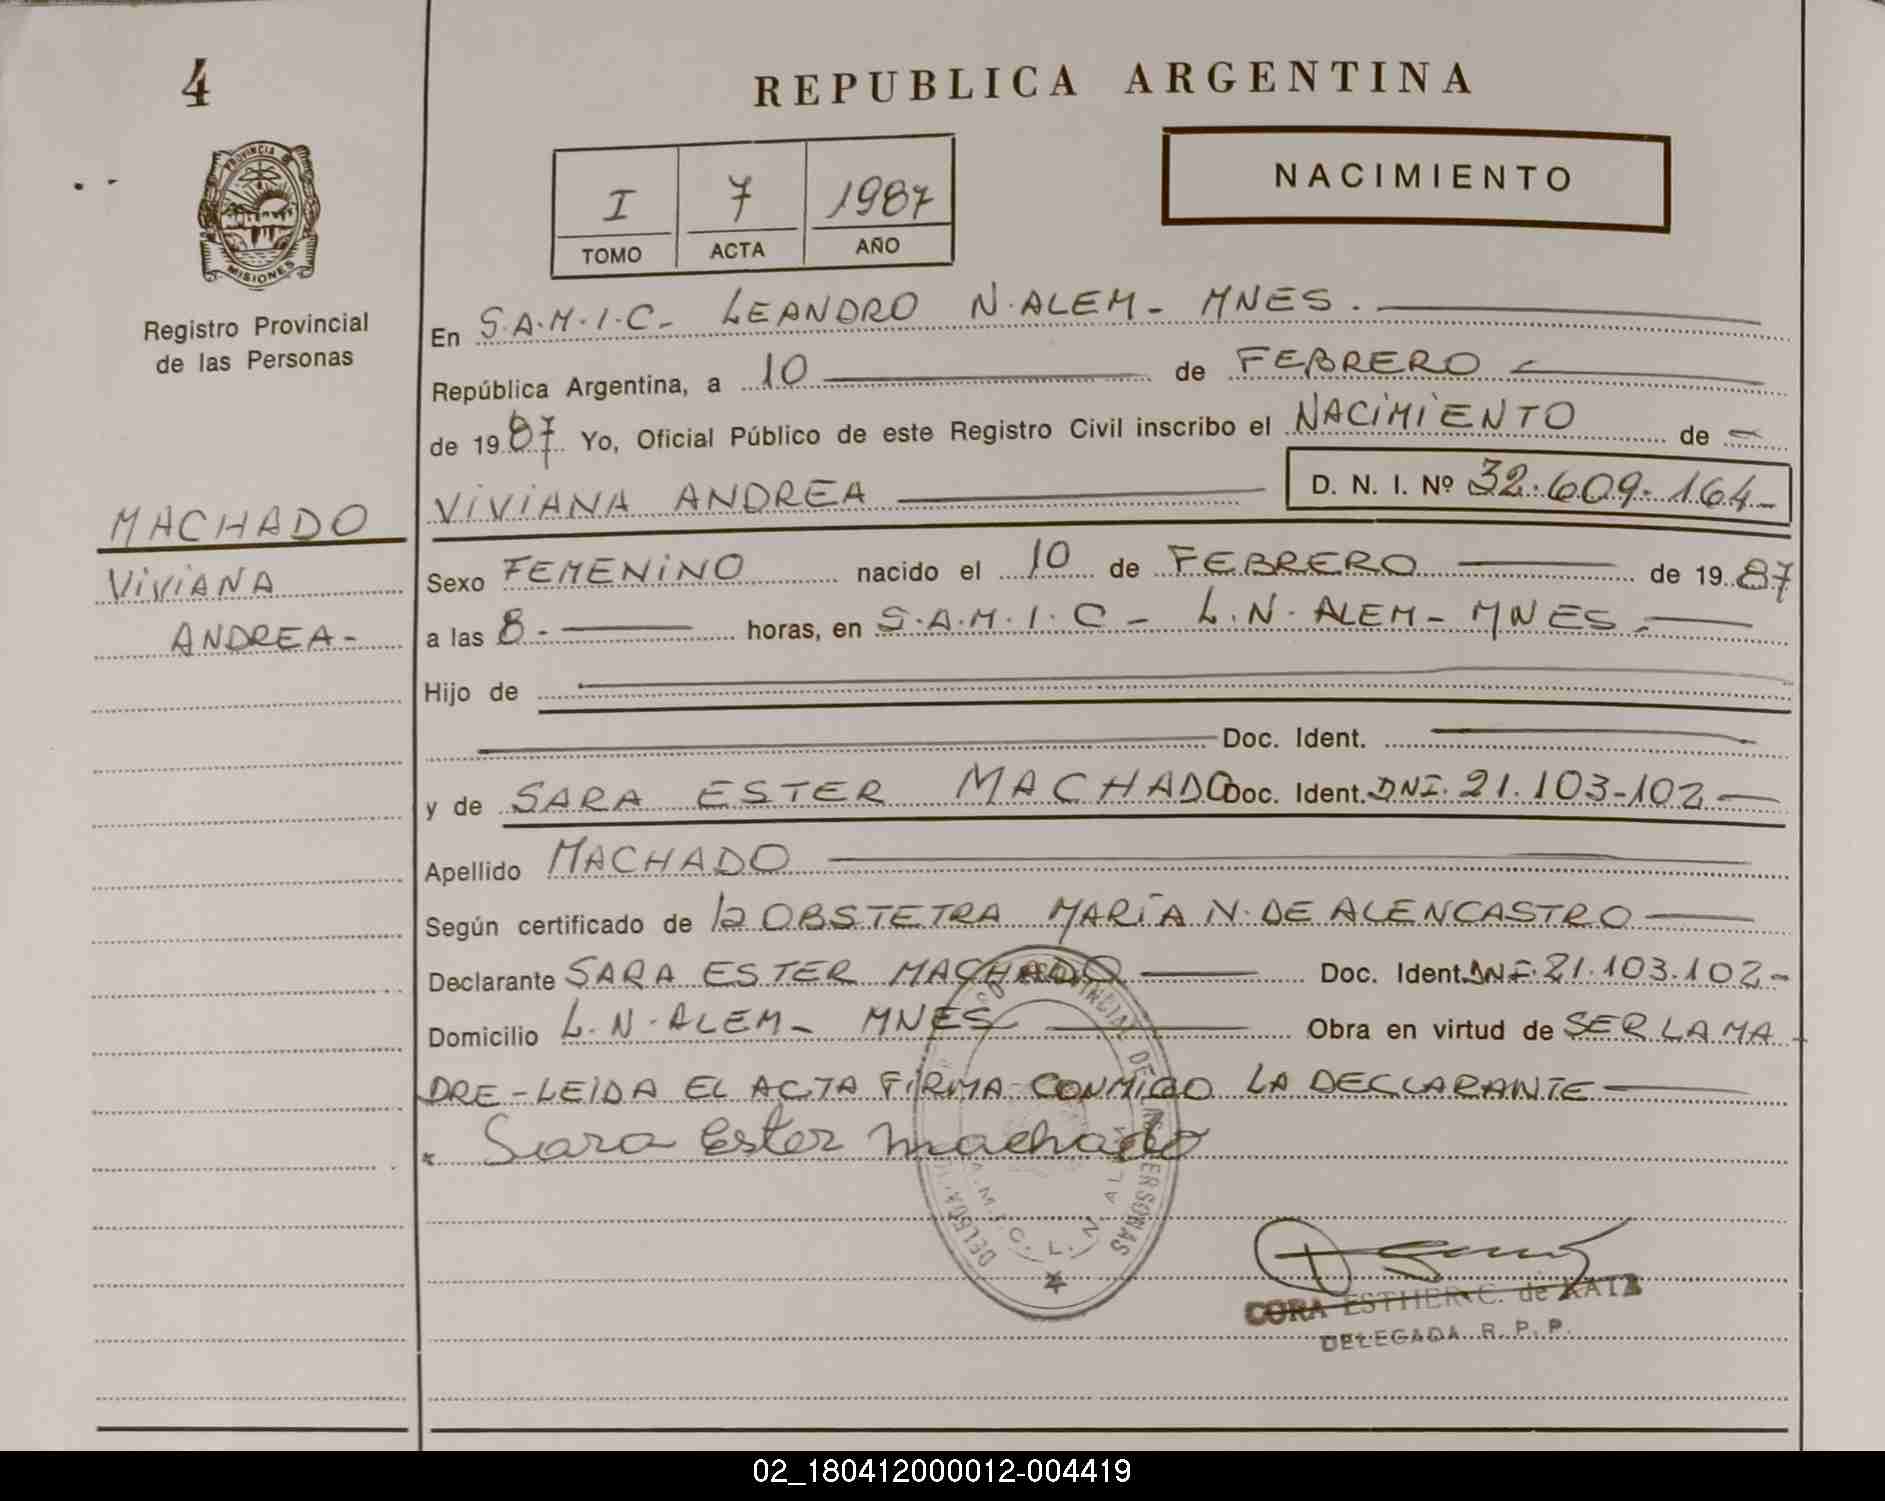 4
REPUBLICA ARGENTINA
PROVINCIA DE
MISIONES
Registro Provincial
de las Personas
I 7 1987
TOMO ACTA AÑO
NACIMIENTO
En S.A.M.I.C- LEANDRO N. ALEM- MNES.
República Argentina, a 10 de FEBRERO
de 1987 Yo, Oficial Público de este Registro Civil inscribo el NACIMIENTO de
VIVIANA ANDREA D. N. I. Nº 32.609.164-
MACHADO
VIVIANA
ANDREA-
Sexo FEMENINO nacido el 10 de FEBRERO de 1987
a las 8- horas, en S.A.M.I.C- L.N. ALEM- MNES-
Hijo de
Doc. Ident.
y de SARA ESTER MACHADO Doc. Ident. DNI. 21.103-102
Apellido MACHADO
Según certificado de la OBSTETRA MARÍA N. DE ALENCASTRO
Declarante SARA ESTER MACHADO Doc. Ident. DNI. 21.103.102-
Domicilio L.N. ALEM- MNES Obra en virtud de SER LA MA
DRE-LEIDA EL ACTA FIRMA CONMIGO LA DECLARANTE
Sara Ester Machado
PROVINCIAL DE LAS PERSONAS
S.A.M.I.C. L. N. ALEM
CORA ESTHER C. de KATZ
DELEGADA R. P. P.
02_180412000012-004419